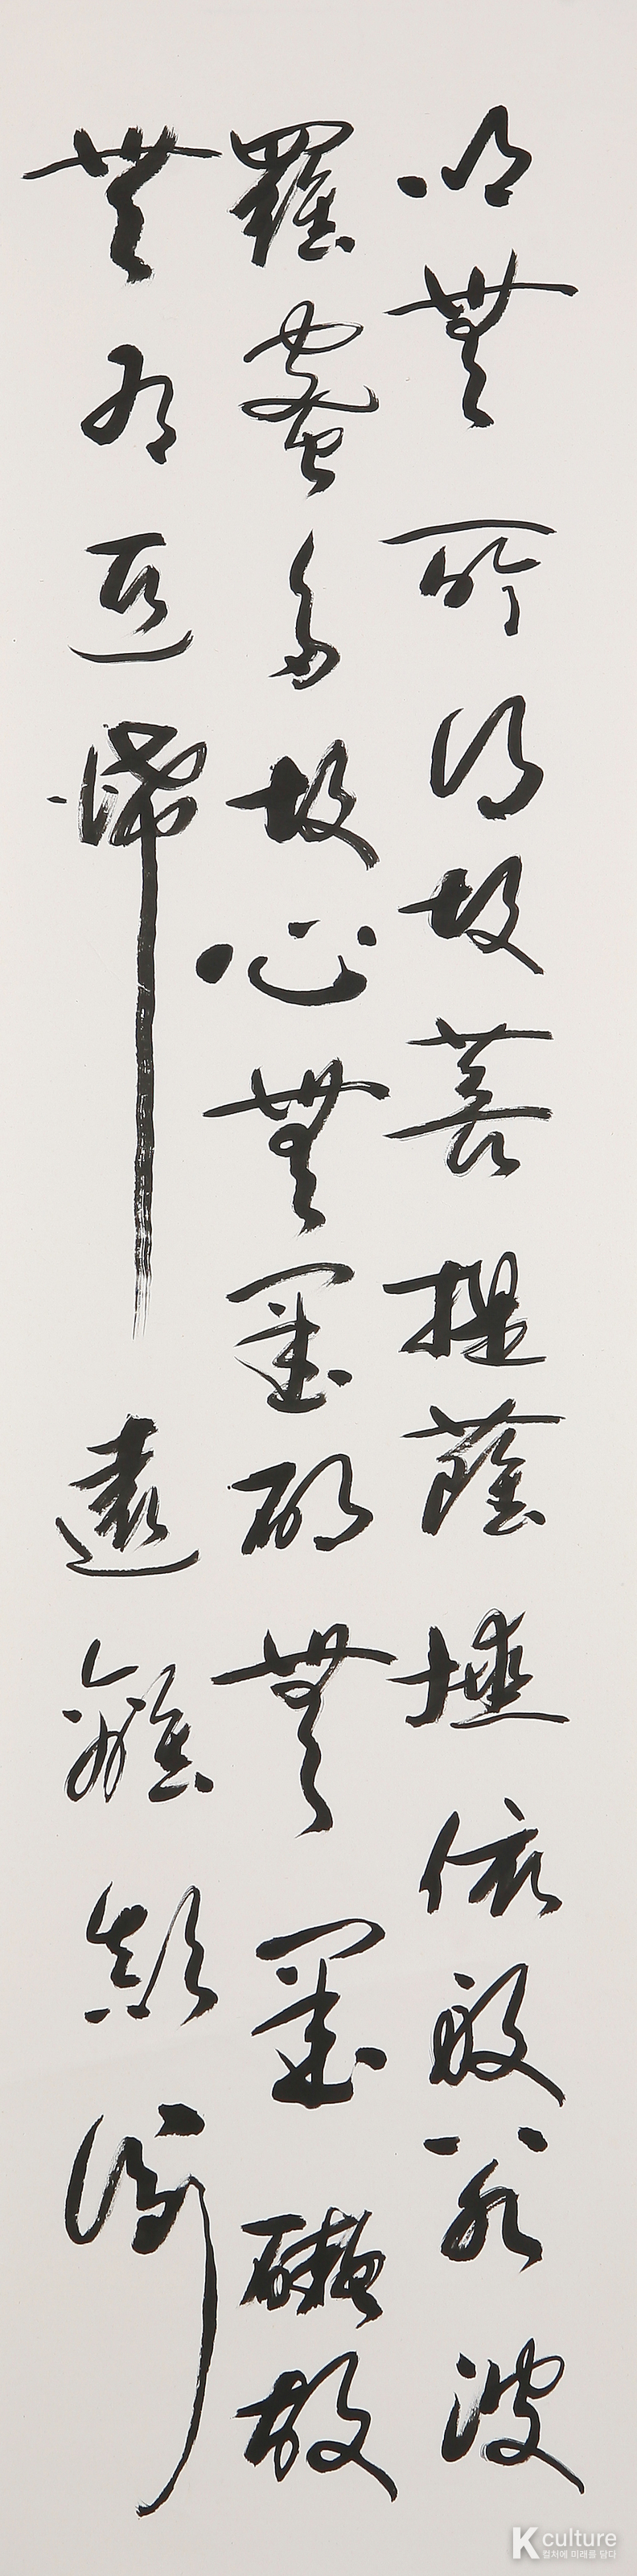 以無所得故菩提薩埵依般若波
羅蜜多故心無罣碍無罣礙故
無有恐怖遠離顛倒
K culture
컬처에 미래를 담다